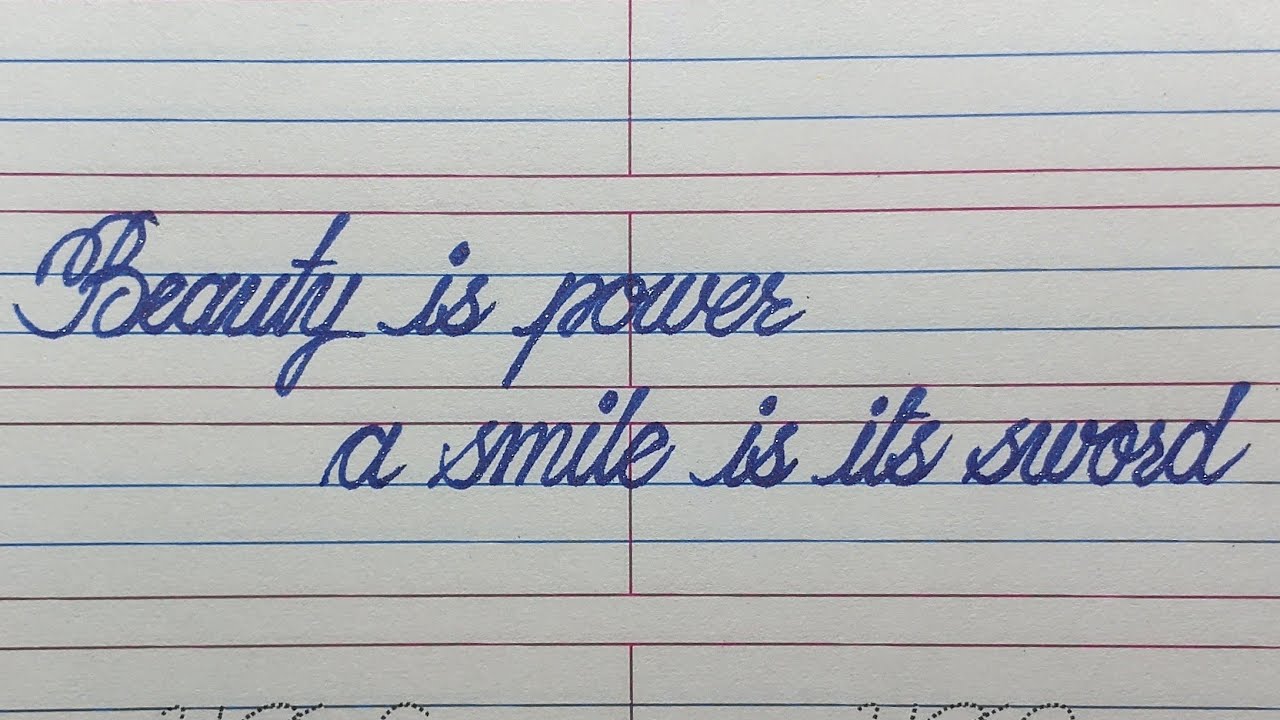 Beauty is power
a smile is its sword